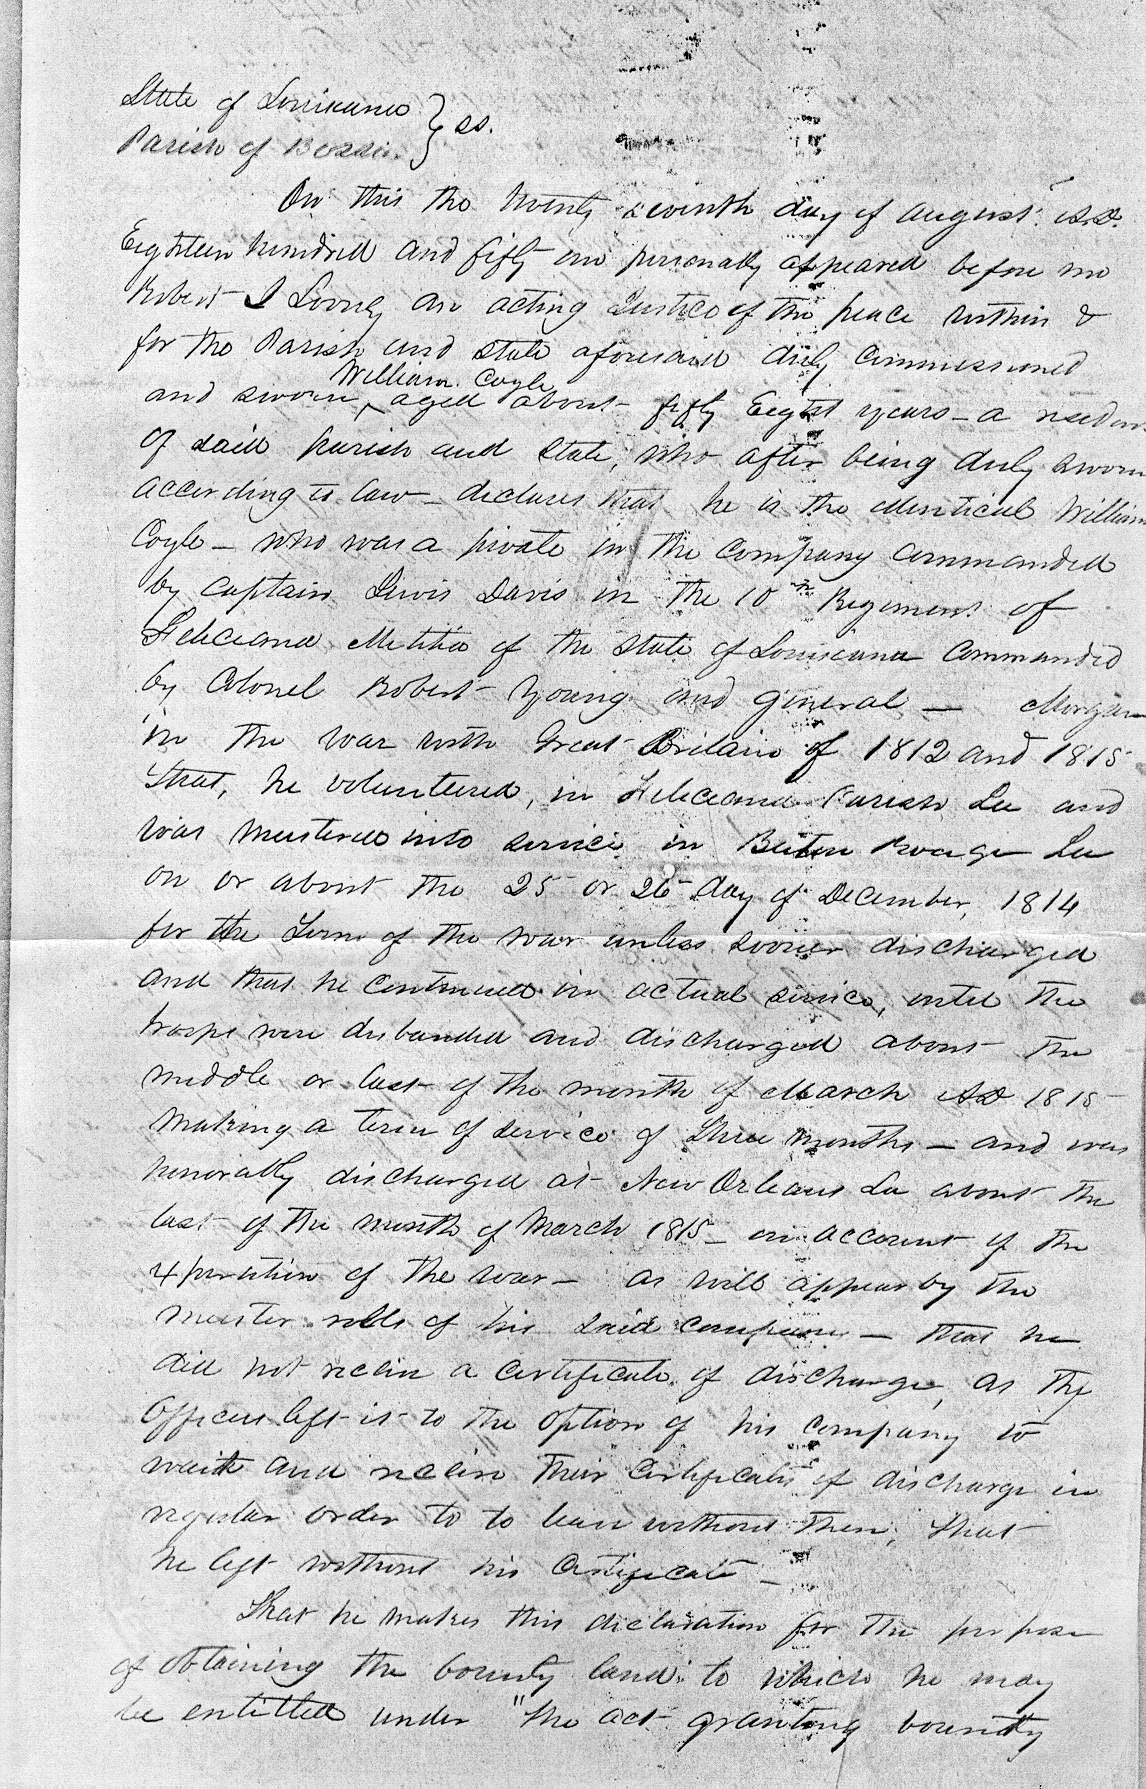 State of Louisiana } ss.
Parish of Bossier
On this the twenty seventh day of August A.D.
Eighteen hundred and fifty one personally appeared before me
Robert I Looney an acting Justice of the peace within &
for the Parish and state aforesaid duly commissioned
William Coyle
and sworn, ^ aged about fifty Eight years - a resident
of said parish and state, who after being duly sworn
according to law - declares that he is the identical William
Coyle - who was a private in the company commanded
by captain Lewis Davis in the 10th Regiment of
Feliciana Militia of the state of Louisiana commanded
by Colonel Robert Young and general — Morgan
in the war with Great Britain of 1812 and 1815
that, he volunteered, in Feliciana Parish La and
was mustered into service in Baton Rouge La
on or about the 25 or 26 day of December, 1814
for the Term of the war unless sooner discharged
and that he continued in actual service, until the
troops were disbanded and discharged about the
middle or last of the month of March AD 1815
making a term of service of three months - and was
honorably discharged at New Orleans La about the
last of the month of March 1815 - on account of the
expiration of the war - as will appear by the
muster rolls of his said company - that he
did not receive a certificate of discharge, as the
officers left it to the option of his company to
wait and receive their certificates of discharge in
regular order to to leave without them, that
he left without his certificate -
That he makes this declaration for the purpose
of obtaining the bounty land to which he may
be entitled under "the act granting bounty